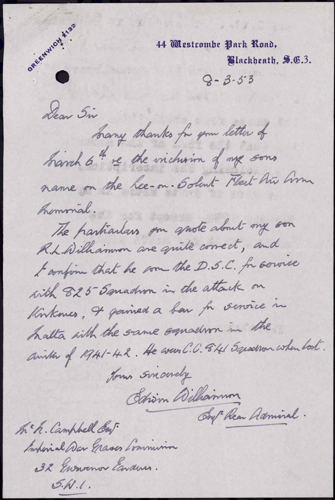 GREENWICH 4133
44 Westcombe Park Road,
Blackheath, S.E.3.
8-3-53
Dear Sir
Many thanks for your letter of
March 6th re the inclusion of my sons
name on the Lee-on-Solent Fleet Air Arm
Memorial.
The particulars you quote about my son
R.L. Williamson are quite correct, and
I confirm that he won the D.S.C. for service
with 825 Squadron in the attack on
Kirkenes, & gained a bar for service in
Malta with the same squadron in the
winter of 1941-42. He was C.O. 841 Squadron when lost.
Yours sincerely
Edwin Williamson
Engr Rear Admiral.
K. Campbell Esqr
Imperial War Graves Commission
32 Grosvenor Gardens
S.W.1.